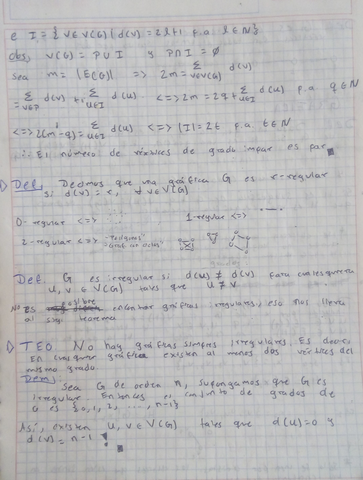 e I = { v ∈ V(G) | d(v) = 2l+1 p.a l ∈ N }
obs, V(G) = P ∪ I y P ∩ I = ∅
sea m = |E(G)| => 2m = Σ v∈V(G) d(v)
= Σ v∈P d(v) + Σ u∈I d(u) <=> 2m = 2q + Σ u∈I d(u) p.a q ∈ N
<=> 2(m-q) = Σ u∈I d(u) <=> |I| = 2t p.a. t ∈ N
∴ El número de vértices de grado impar es par
Def. Decimos que una gráfica G es r-regular
si d(v) = r, ∀ v ∈ V(G)
0- regular <=> 1-regular <=>
2-regular <=>
Def. G es irregular si d(u) ≠ d(v) para cualesquiera
u, v ∈ V(G) tales que u ≠ v.
No es posible encontrar gráficas irregulares, eso nos lleva
al sig. teorema
TEO No hay gráficas simples irregulares. Es decir,
En cualquier gráfica existen al menos dos vértices del
mismo grado.
Dem. Sea G de orden n, supongamos que G es
irregular. Entonces el conjunto de grados de
G es {0, 1, 2, ..., n-1}
Así, existen u, v ∈ V(G) tales que d(u) = 0 y
d(v) = n-1 !